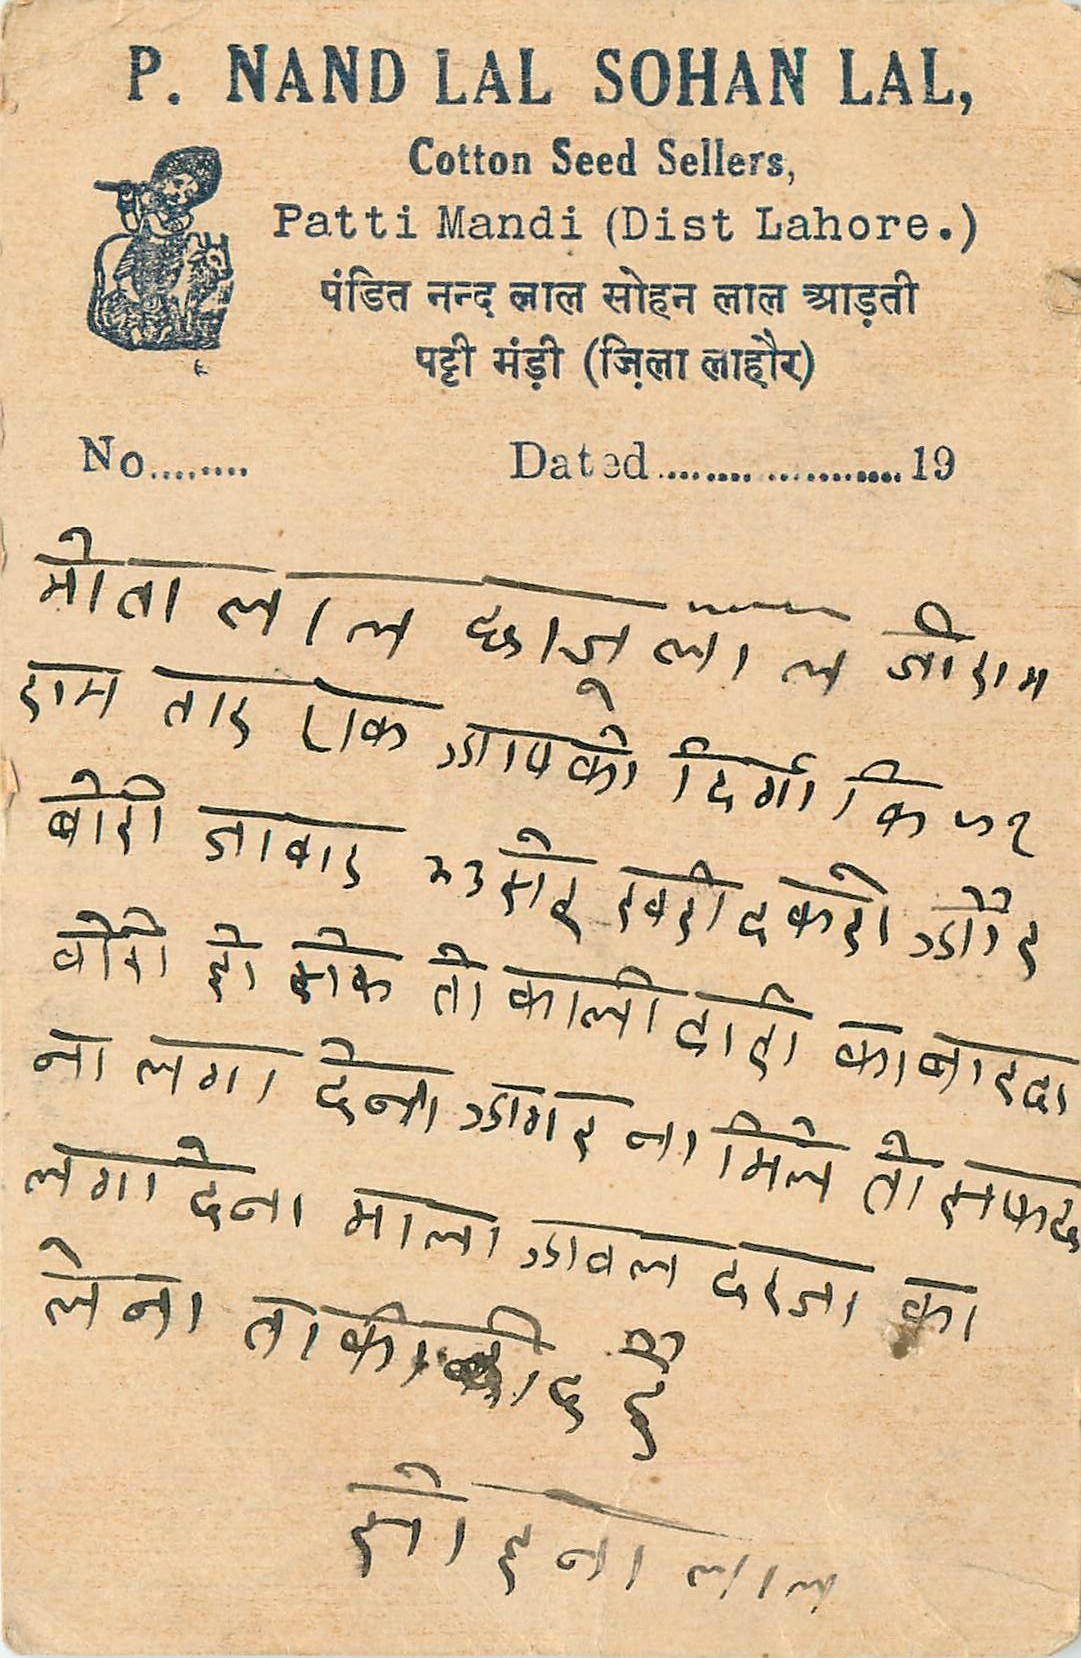 P. NAND LAL SOHAN LAL,
Cotton Seed Sellers,
Patti Mandi (Dist Lahore.)
पंडित नन्द लाल सोहन लाल आड़ती
पट्टी मंड़ी (ज़िला लाहौर)
No........ Dated.....................19
मोता लाल छाजू लाल जोराम
राम तार एक आपको दिगा कि ५२
बोरी जावार सेर खरीद करो और
बोरी हो सेक तो काली दारी का बारदा
ना लगा देना अगर ना मिले तो सफेद
लगा देना माला अवल दरजा का
लेना ताकीद है
सोहना लाल